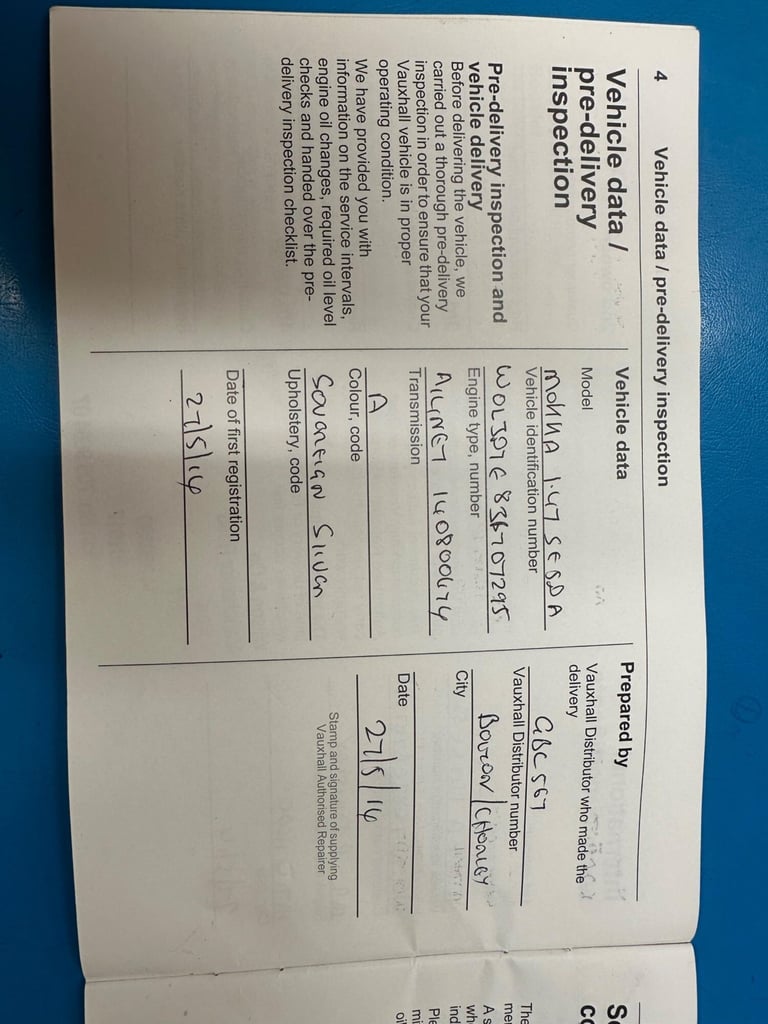 4 Vehicle data / pre-delivery inspection
Vehicle data /
pre-delivery
inspection
Pre-delivery inspection and
vehicle delivery
Before delivering the vehicle, we
carried out a thorough pre-delivery
inspection in order to ensure that your
Vauxhall vehicle is in proper
operating condition.
We have provided you with
information on the service intervals,
engine oil changes, required oil level
checks and handed over the pre-
delivery inspection checklist.
Vehicle data
Model
MOKKA 1.4T SE
Vehicle identification number
Engine type, number
A14NET
Transmission
A
Colour, code
SOVEREIGN SILVER
Upholstery, code
Date of first registration
27/5/14
Prepared by
Vauxhall Distributor who made the
delivery
GBC567
Vauxhall Distributor number
BOLTON/CHORLEY
City
Date
27/5/14
Stamp and signature of supplying
Vauxhall Authorised Repairer